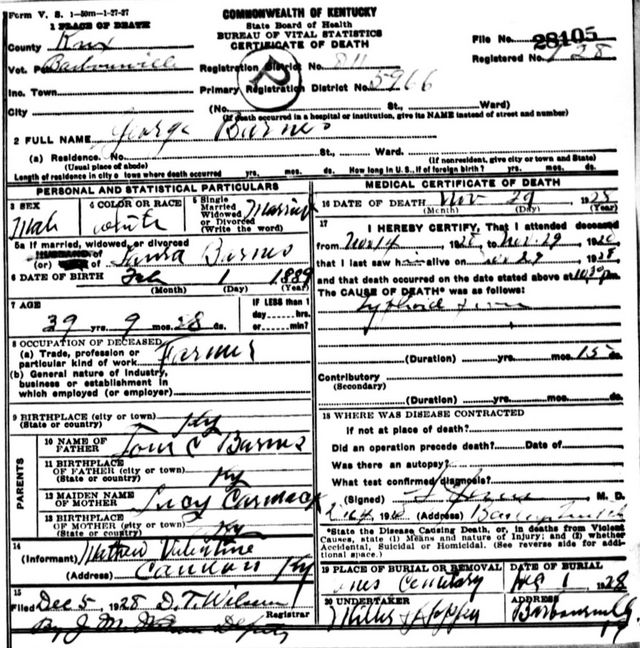 Form V. S. 1-50m-1-27-27
COMMONWEALTH OF KENTUCKY
State Board of Health
BUREAU OF VITAL STATISTICS
CERTIFICATE OF DEATH
1 PLACE OF DEATH
County Knox
File No. 28105
Vot. P Barbourville Registration District No. 811 Registered No. 128
Inc. Town Primary Registration District No. 5966
City (No. St., Ward)
(If death occurred in a hospital or institution, give its NAME instead of street and number)
2 FULL NAME George Barnes
(a) Residence. No. St., Ward.
(Usual place of abode) (If nonresident, give city or town and State)
Length of residence in city or town where death occurred yrs. mos. ds. How long in U.S., if of foreign birth? yrs. mos. ds.
PERSONAL AND STATISTICAL PARTICULARS
3 SEX 4 COLOR OR RACE 5 Single Married Widowed or Divorced (Write the word)
Male white Married
5a If married, widowed, or divorced
HUSBAND of
(or) of Barnes
6 DATE OF BIRTH Feb 1 1889
(Month) (Day) (Year)
7 AGE IF LESS than 1
39 yrs. 9 mos. 28 ds. day hrs. or min.
8 OCCUPATION OF DECEASED
(a) Trade, profession or particular kind of work Farmer
(b) General nature of Industry, business or establishment in which employed (or employer)
9 BIRTHPLACE (city or town)
(State or country) Ky
PARENTS
10 NAME OF FATHER Tom C Barnes
11 BIRTHPLACE OF FATHER (city or town)
(State or country) Ky
12 MAIDEN NAME OF MOTHER Lucy Carmack
13 BIRTHPLACE OF MOTHER (city or town)
(State or country) Ky
14
(Informant) Mathew Valentine
(Address) Cannon Ky
15
Filed Dec 5, 1928 D. T. Wilson
Registrar
By J. M. Deputy
MEDICAL CERTIFICATE OF DEATH
16 DATE OF DEATH Nov 29 1928
(Month) (Day) (Year)
17 I HEREBY CERTIFY, That I attended deceased
from Nov 14 1928, to Nov. 29 1928
that I last saw him alive on Nov 29 1928
and that death occurred on the date stated above at 10 30 Pm.
The CAUSE OF DEATH* was as follows:
Typhoid Fever
(Duration) yrs. mos. 15 ds.
Contributory
(Secondary)
(Duration) yrs. mos. ds.
18 WHERE WAS DISEASE CONTRACTED
If not at place of death?
Did an operation precede death? Date of
Was there an autopsy?
What test confirmed diagnosis?
(Signed) M. D.
(Address)
*State the Disease Causing Death, or, in deaths from Violent
Causes, state (1) Means and nature of Injury; and (2) whether
Accidental, Suicidal or Homicidal. (See reverse side for addi-
tional space.)
19 PLACE OF BURIAL OR REMOVAL DATE OF BURIAL
Cemetary Dec 1 1928
20 UNDERTAKER ADDRESS
Miller & Hopper Barbourville
Ky